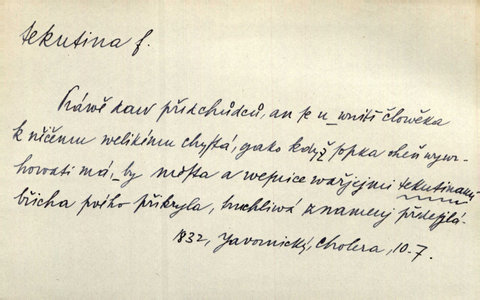 tekutina f.
Práwě daw předchůdců, an se u_wnitř člowěka
k něčemu welikému chystá, gako když sopka oheň wywr-
howati má,_by města a wesnice wařjcjmi tekutinami
břicha swého přikryla, hruchliwá znamenj předesjlá.
1832, Jawornický, Cholera, 10-7.